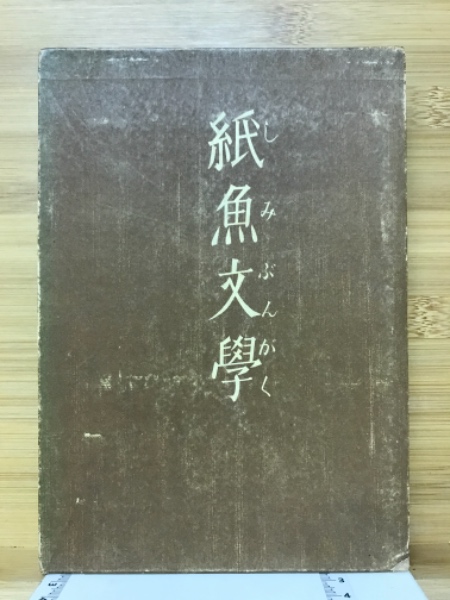 紙魚文學
しみぶんがく
3
4